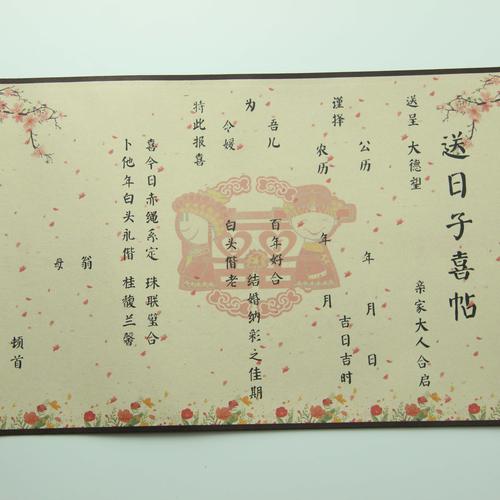 送日子喜帖
送呈 大德望 亲家大人合启
谨择
公历 年 月 日
农历 年 月 吉日吉时
为
吾儿 百年好合
令媛 白头偕老
结婚纳彩之佳期
特此报喜
喜今日赤绳系定 珠联璧合
卜他年白头永偕 桂馥兰馨
翁
母
顿首